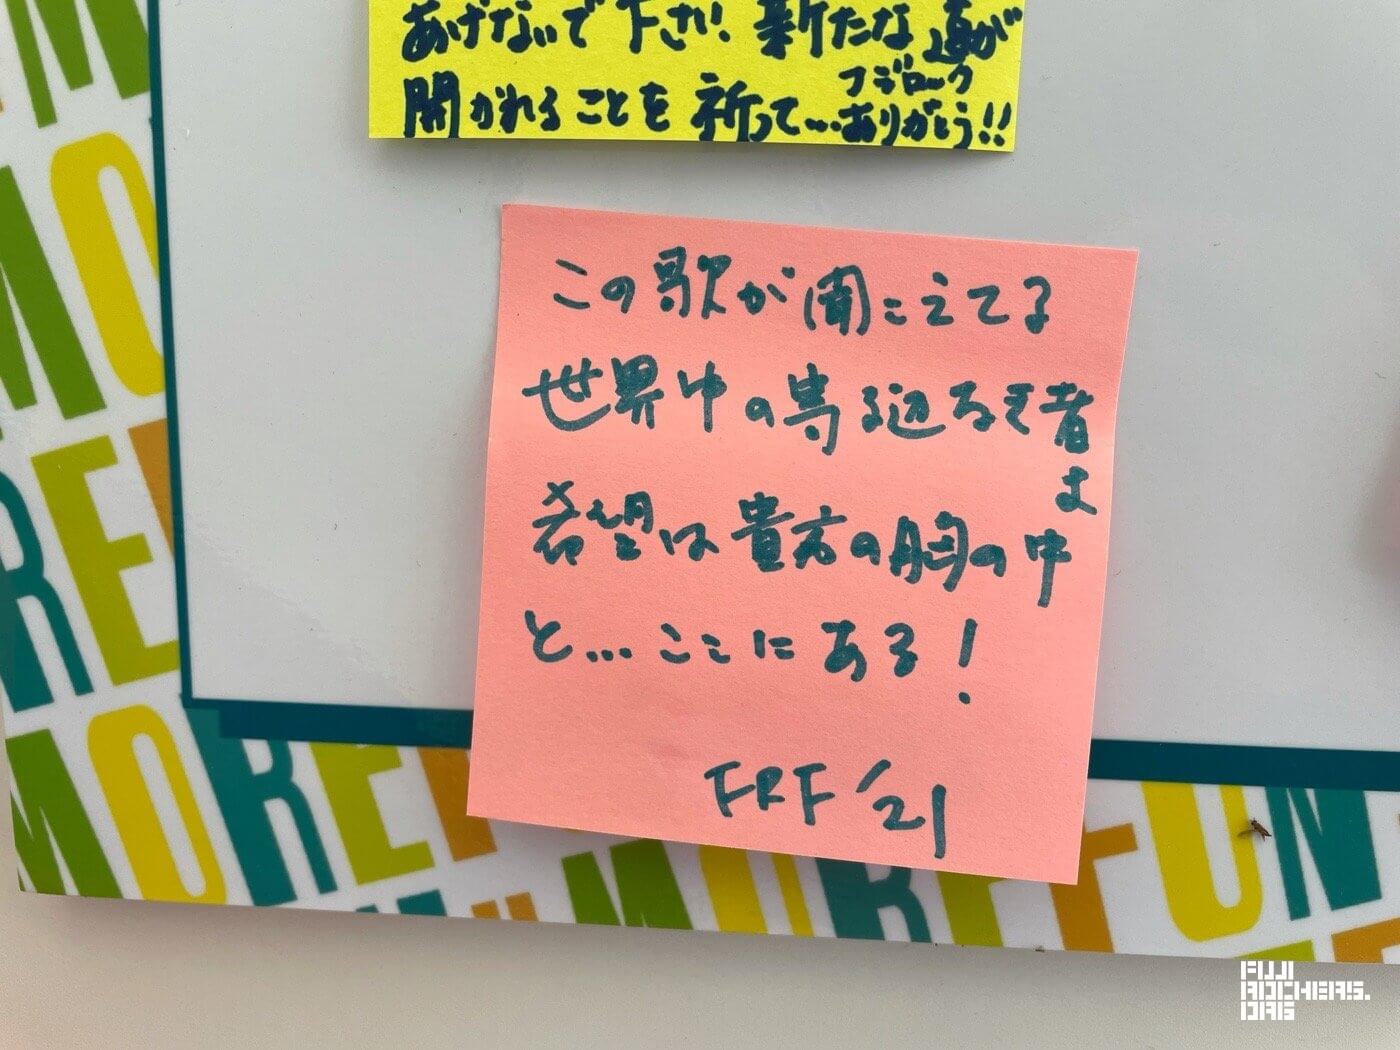 あげないで下さい 新たな道が
開かれることを祈って…フジロック
ありがとう!!
この歌が聞こえてる
世界中の寄る辺なき者
よ
希望は貴方の胸の中
と…ここにある!
FRF '21
MORE FUN
FUJI
ROCKERS.
ORG